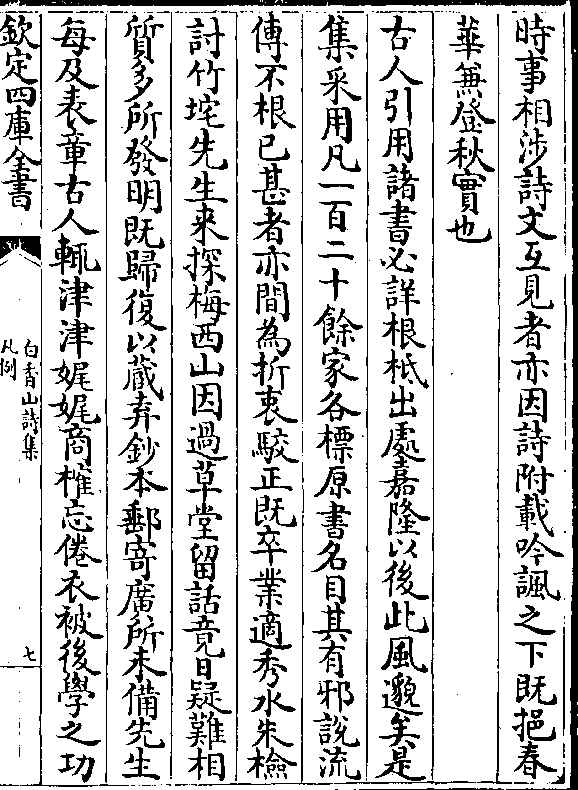 時事相涉詩文互見者亦因詩附載吟諷之下既挹春
華兼登秋實也
古人引用諸書必詳根柢出處嘉隆以後此風邈矣是
集采用凡一百二十餘家各標原書名目其有邪說流
傳不根已甚者亦間為折衷駮正既卒業適秀水朱檢
討竹垞先生来探梅西山因過草堂留話竟日疑難相
質多所發明既歸復以蔵弆鈔本郵寄廣所未備先生
每及表章古人輒津津娓娓商榷忘倦衣被後學之功
欽定四庫全書
白香山詩集
凡例
七